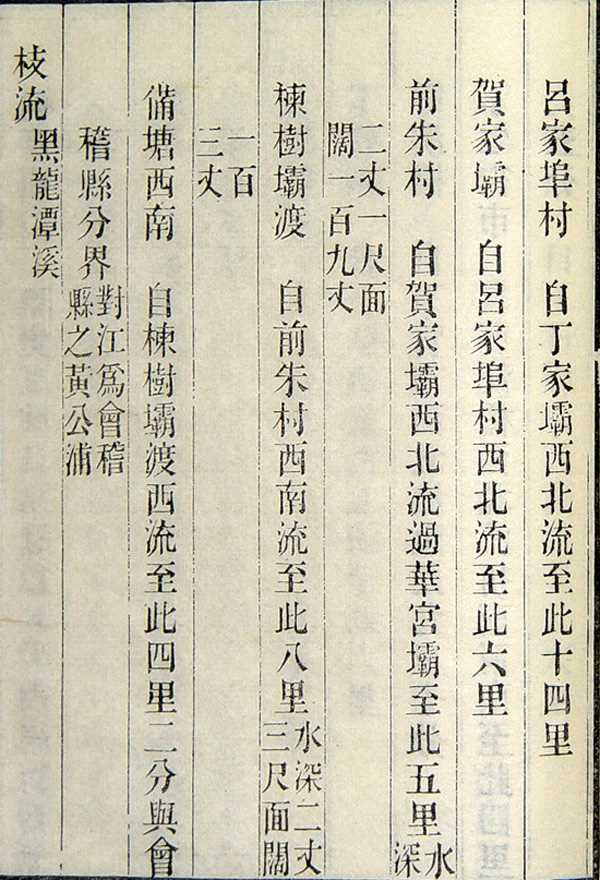 呂家埠村　自丁家壩西北流至此十四里
賀家壩　自呂家埠村西北流至此六里
前朱村　自賀家壩西北流過華宮壩至此五里水
深
二丈一尺面
闊一百九丈
楝樹壩渡　自前朱村西南流至此八里水深二丈
三尺面闊
一百
三丈
偹塘西南　自楝樹壩渡西流至此四里二分與會
稽縣分界對江爲會稽
縣之黃公浦
枝流
黑龍潭溪